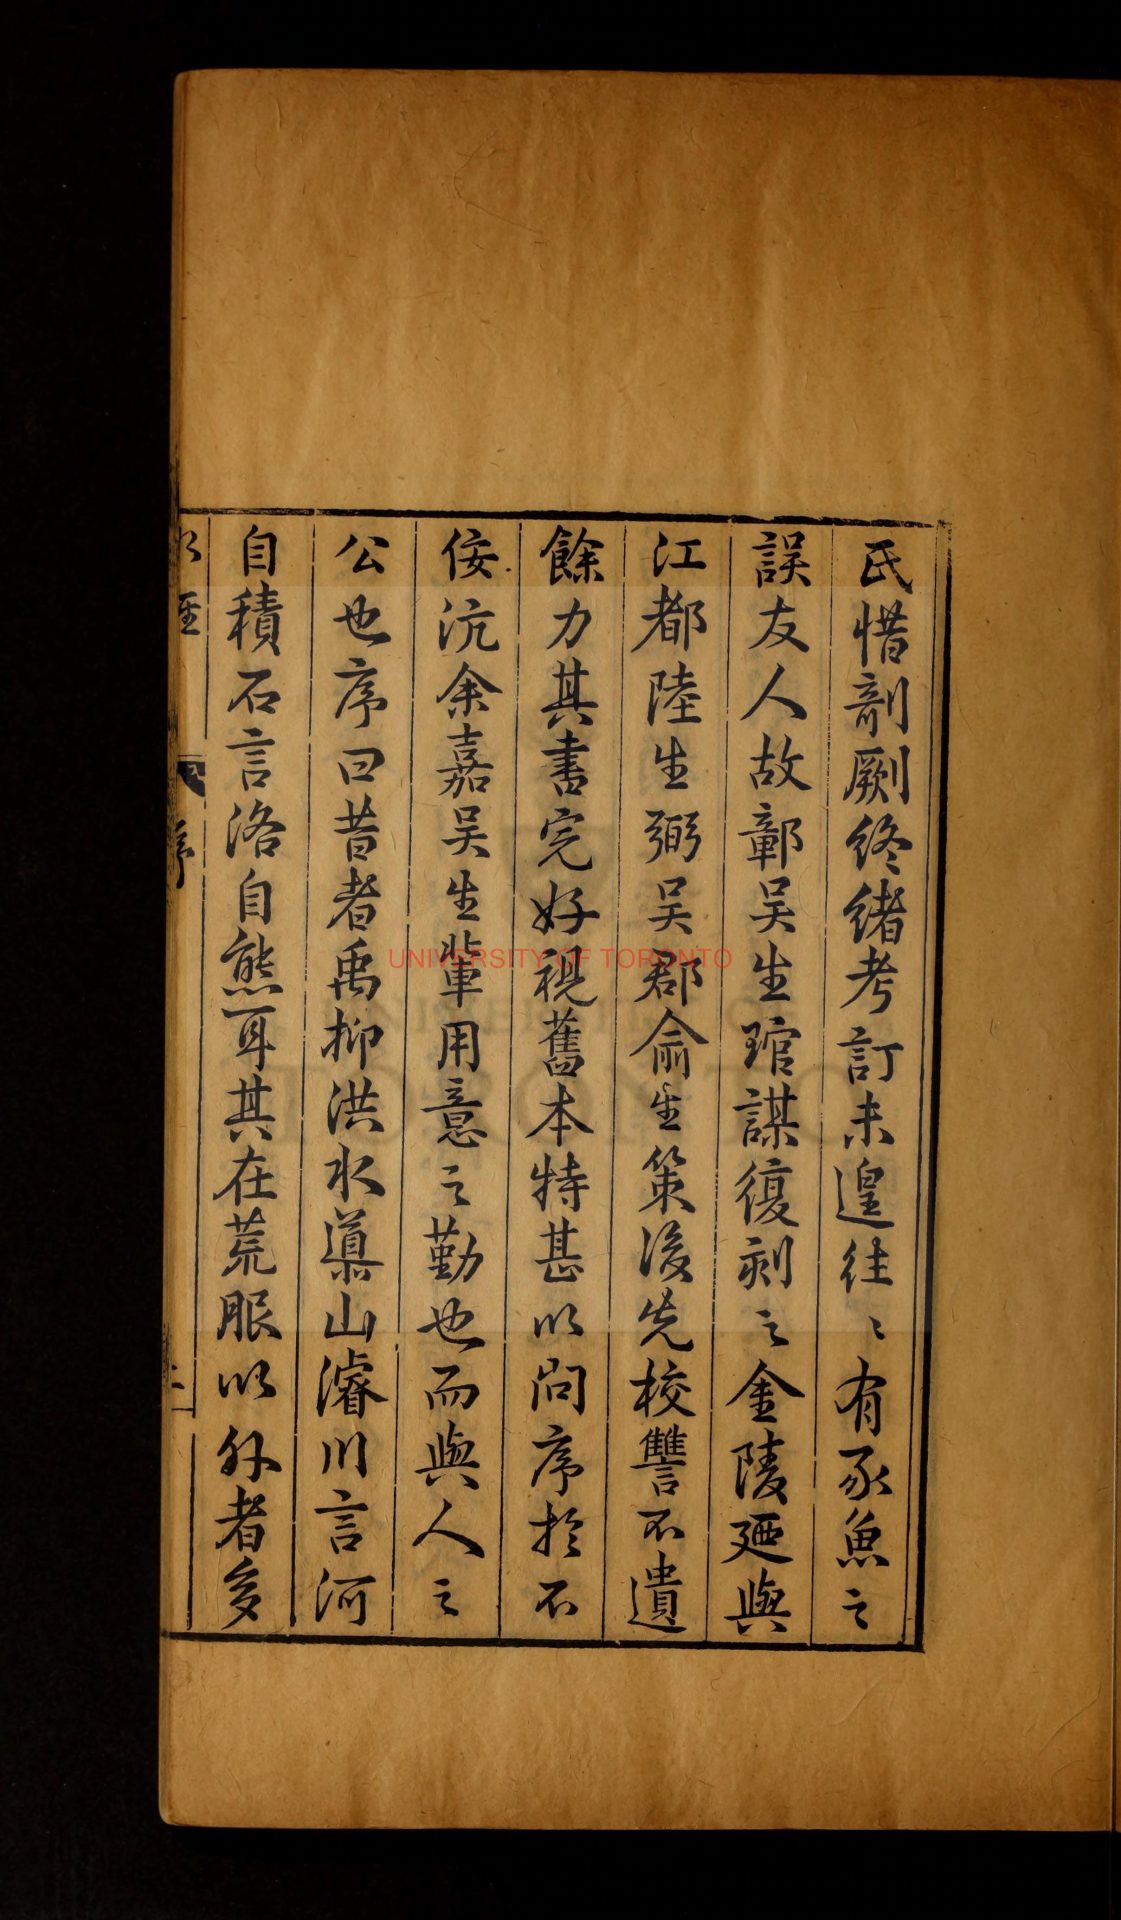 氏惜剞劂終緒考訂未遑往〻有豕魚之
誤友人故鄣吳生琯謀復刻之金陵廼與
江都陸生弼吳郡俞生策後先校讐不遺
餘力其書完好視舊本特甚以問序於不
佞沆余嘉吳生輩用意之勤也而與人之
公也序曰昔者禹抑洪水䆃山濬川言河
自積石言洛自熊耳其在荒服以外者多
水經
序
二
UNIVERSITY OF TORONTO